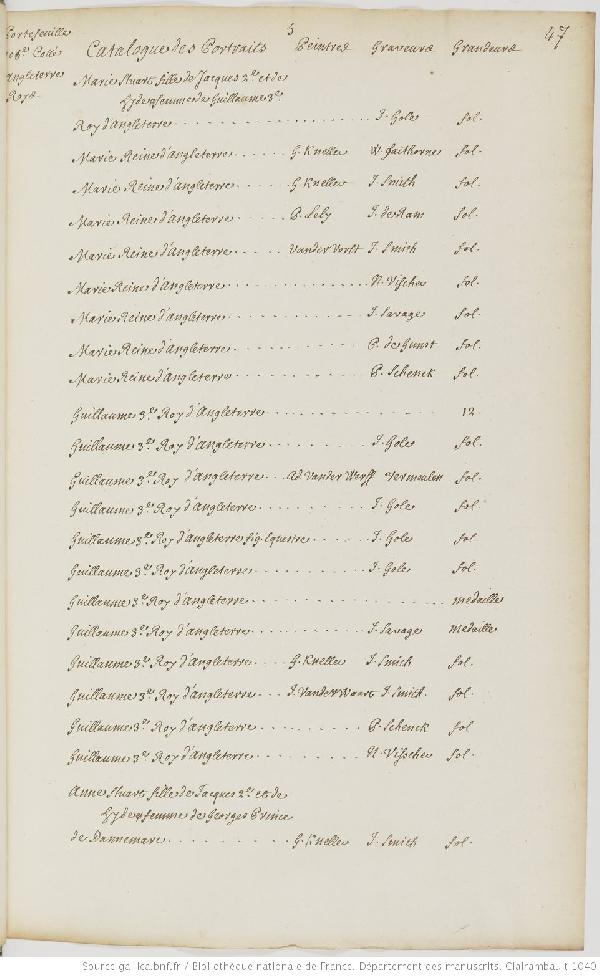 Portefeuille
Angleterre
Roys
5
47
Catalogue des Portraits Peintres Graveurs Grandeurs
Marie Stuart fille de Jacques 2.e et de
Hyde femme de Guillaume 3.e
Roy d'Angleterre J. Gole fol.
Marie Reine d'Angleterre G. Kneller W. Faithorne fol.
Marie Reine d'Angleterre G. Kneller J. Smith fol.
Marie Reine d'Angleterre P. Lely J. de Ram fol.
Marie Reine d'Angleterre Vander Vorst J. Smith fol.
Marie Reine d'Angleterre N. Visscher fol.
Marie Reine d'Angleterre J. Savage fol.
Marie Reine d'Angleterre P. de Gunst fol.
Marie Reine d'Angleterre P. Schenck fol.
Guillaume 3.e Roy d'Angleterre 12
Guillaume 3.e Roy d'Angleterre J. Gole fol.
Guillaume 3.e Roy d'Angleterre Ad. Vander Werff Vermeulen fol.
Guillaume 3.e Roy d'Angleterre J. Gole fol.
Guillaume 3.e Roy d'Angleterre fig. Equestre J. Gole fol.
Guillaume 3.e Roy d'Angleterre J. Gole fol.
Guillaume 3.e Roy d'Angleterre medaille
Guillaume 3.e Roy d'Angleterre J. Savage medaille
Guillaume 3.e Roy d'Angleterre G. Kneller J. Smith fol.
Guillaume 3.e Roy d'Angleterre J. Vander Waart J. Smith. fol.
Guillaume 3.e Roy d'Angleterre P. Schenck fol
Guillaume 3.e Roy d'Angleterre N. Visscher fol.
Anne Stuart fille de Jacques 2.e et de
Hyde femme de Georges Prince
de Dannemarc G. Kneller J. Smith fol.
Source gallica.bnf.fr / Bibliothèque nationale de France. Département des manuscrits. Clairambault 1040